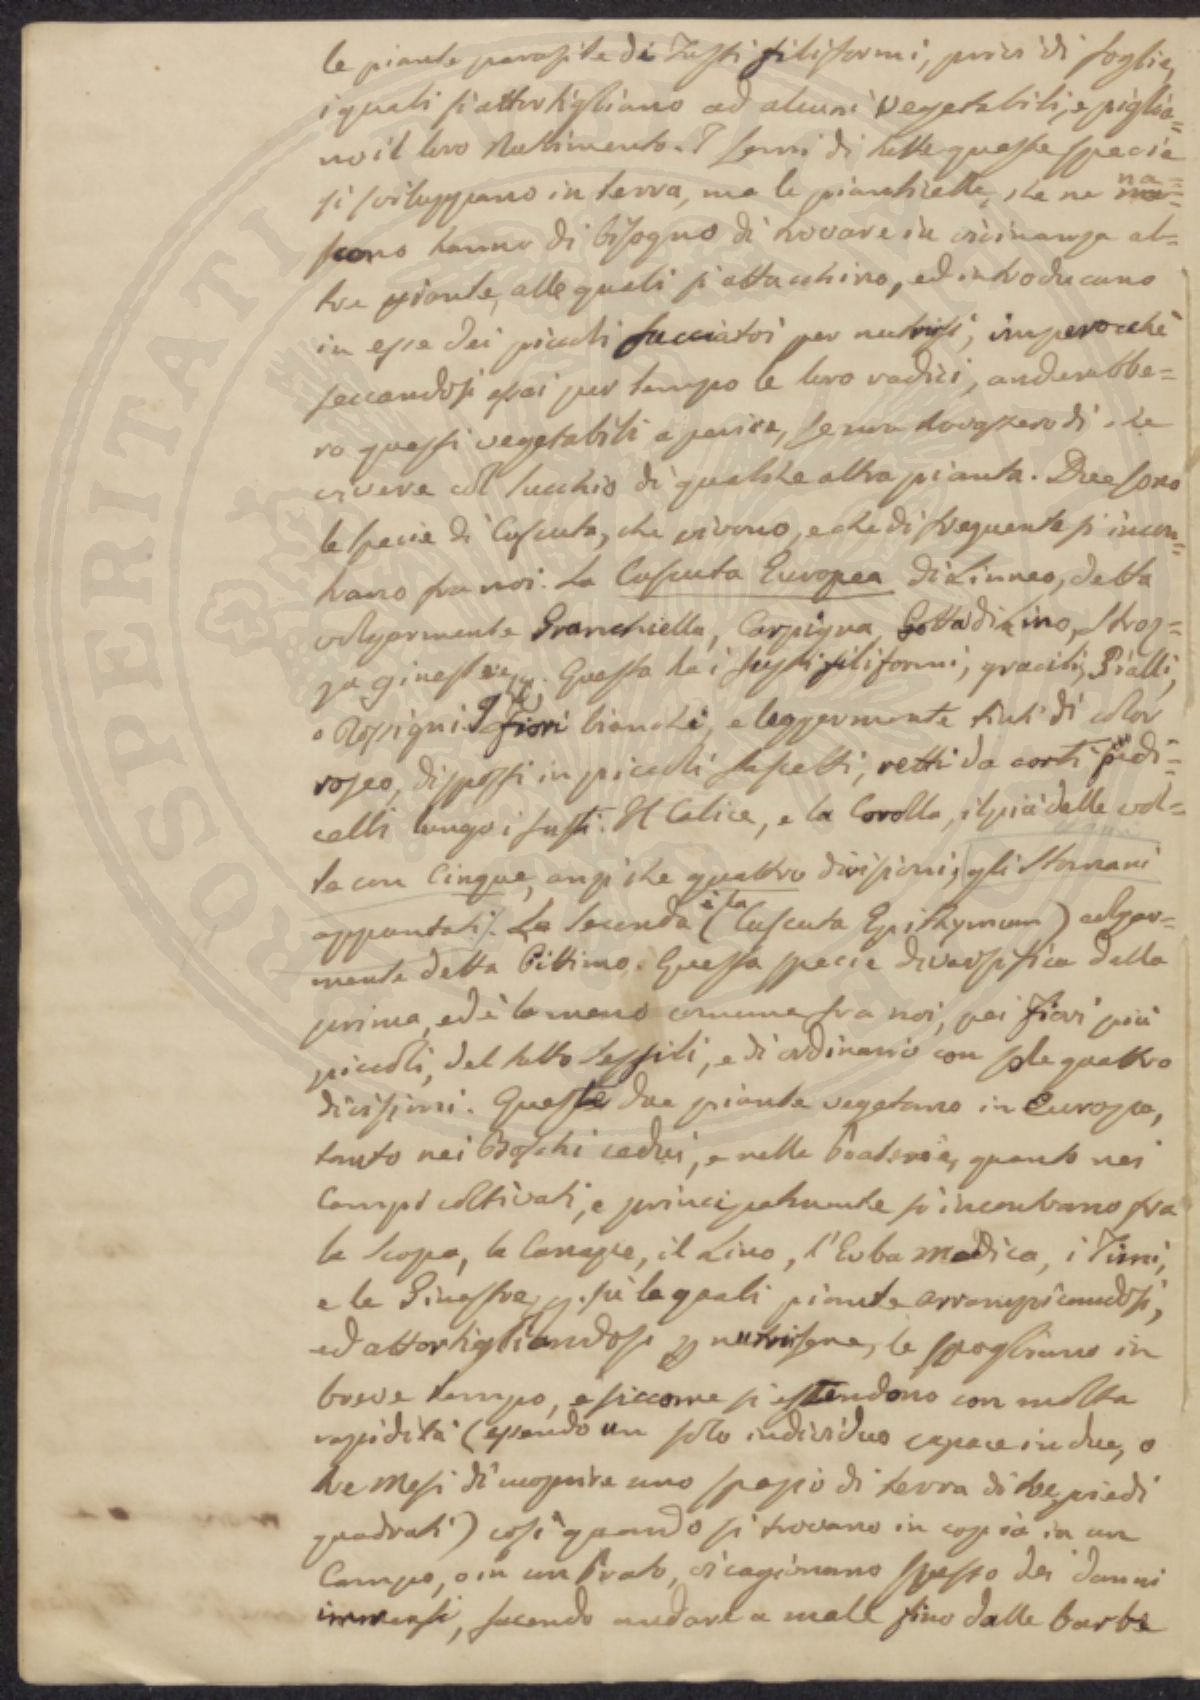 le piante parasite di Fusti filiformi, privi di foglie,
i quali si attortigliano ad alcuni Vegetabili, e piglia=
no il loro Nutrimento. I semi di tutte queste specie
si sviluppano in terra, ma le pianticelle, che ne na=
scono hanno di bisogno di trovare in vicinanza al=
tre piante, alle quali si attacchino, ed introducano
in esse dei piccoli succiatoi per nutrirsi, imperocchè
seccandosi assai per tempo le loro radici, anderebbe=
ro questi vegetabili a perire, senza di che
vivere col succhio di qualche altra pianta. Due sono
le specie di Cuscuta, che vivono, e che di frequente si incon=
trano fra noi. La Cuscuta Europea di Linneo, detta
volgarmente Granchiella, Carpigna, Gotta di Lino, Stroz=
za ginestre. Questa ha i fusti filiformi, gracili, Gialli,
o Rossigni. I fiori bianchi, e leggermente tinti di color
roseo, disposti in piccoli fascetti, retti da corti pedi=
celli lungo i fusti. Il Calice, e la Corolla, il più delle vol=
te con Cinque, anzi che quattro divisioni, gli Stornani
appuntati. La Seconda è la (Cuscuta Epithymum) volgar=
mente detta Pittimo. Questa specie diversifica dalla
prima, ed è la meno comune fra noi, pei fiori più
piccoli, del tutto sessili, e di ordinario con sole quattro
divisioni. Queste due piante vegetano in Europa,
tanto nei Boschi cedui, e nelle quanto nei
Campi coltivati, e principalmente s'incontrano fra
la Scopa, la Canape, il Lino, l'Erba medica, i Timi,
e le Ginestre, su le quali piante arrampicandosi,
ed attortigliandosi p nutrirsene, le spogliano in
breve tempo, e siccome si estendono con molta
rapidità (essendo un solo individuo capace in due, o
tre Mesi di ricoprire uno spazio di terra di tre piedi
quadrati) così quando si trovano in copia in un
Campo, o in un Prato, vi cagionano spesso dei danni
immensi, facendo andare a male fino dalle barbe
PROSPERITATI PUBLICAE